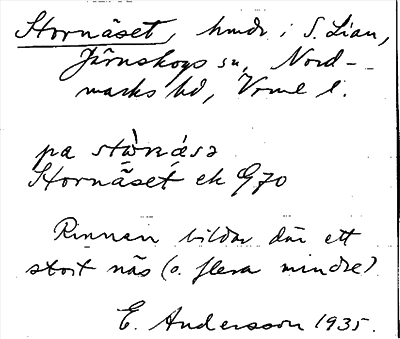 Stornäset, hmdr i S. Lian,
Järnskogs sn, Nord-
marks hd, Vrml l.
pa stònásə
Stornäset ek G70
Rinnan bildar där ett
stort näs (o. flera mindre)
E. Andersson 1935.